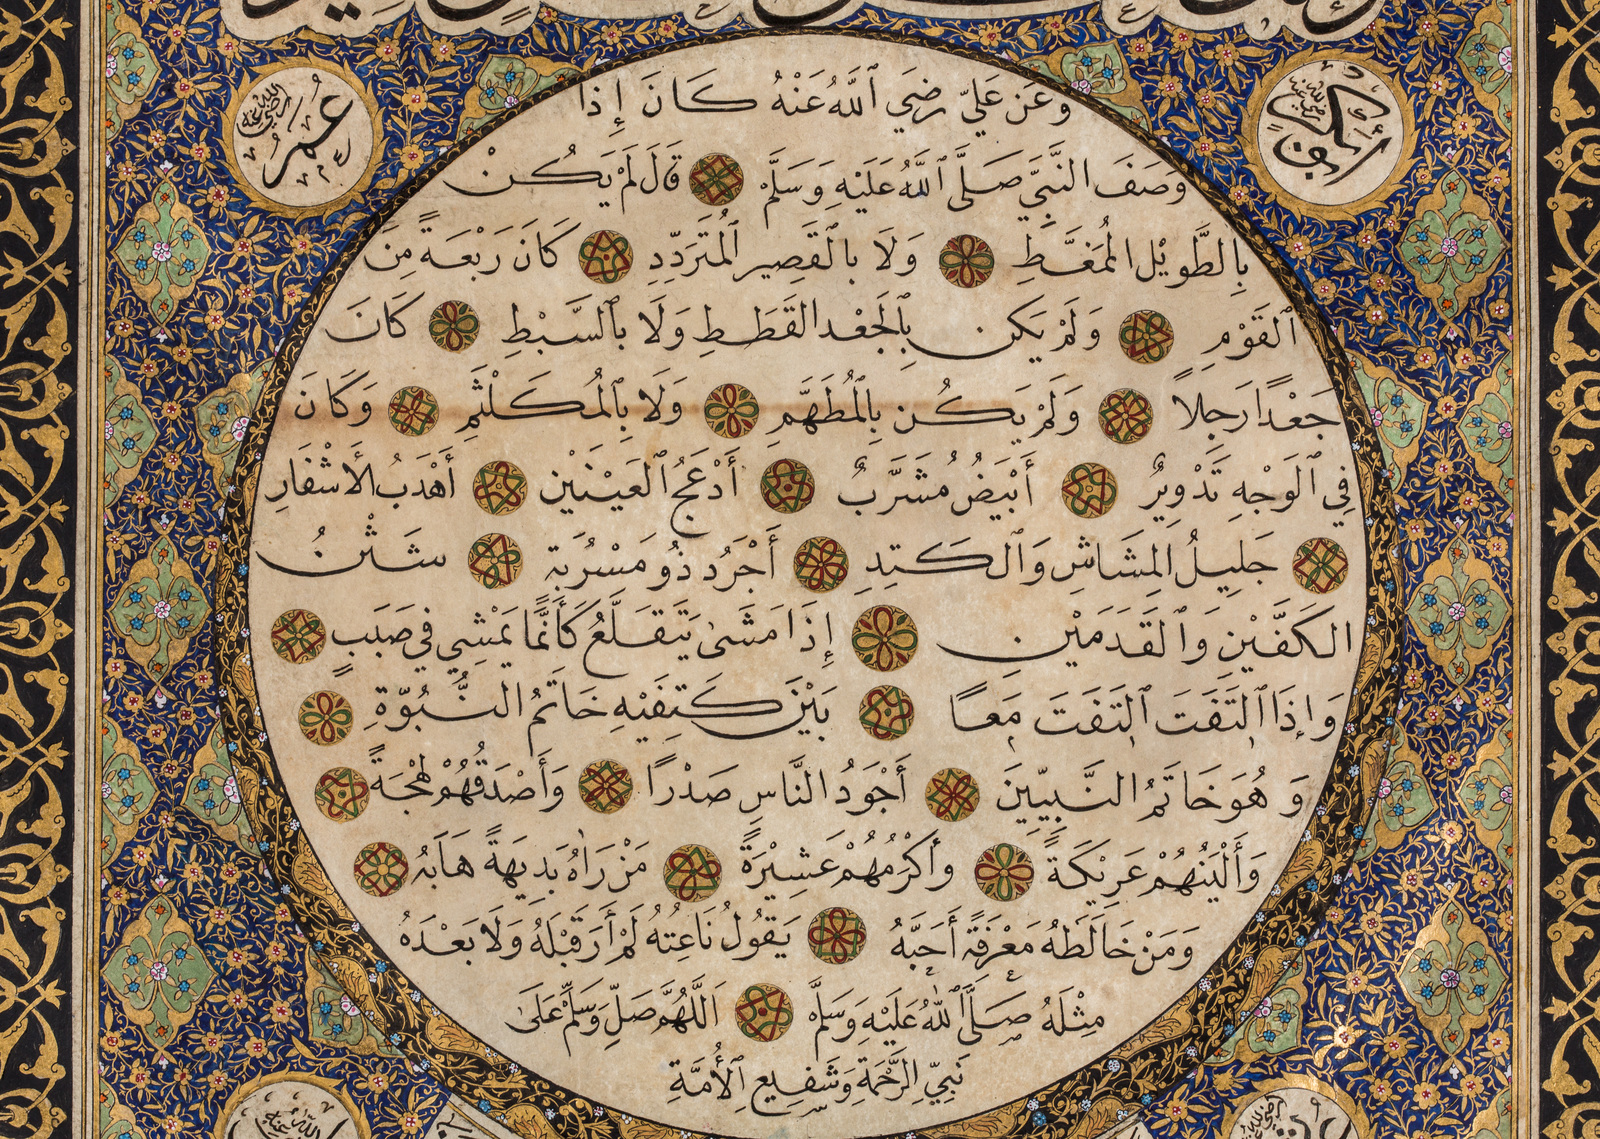 أبو بكر رضي الله عنه
عُمَرُ رضي الله عنه
وَعَن عَلِيّ رَضِيَ ٱللَّهُ عَنْهُ كَانَ إِذَا
وَصَفَ النَّبِيَّ صَلَّى ٱللَّهُ عَلَيْهِ وَسَلَّمْ قَالَ لَمْ يَكُنْ
بِالطَّوِيْلِ الْمُمَغَّطِ وَلَا بالْقَصِيرِ الْمُتَرَدِّدِ كَانَ رَبْعَةً مِنَ
ٱلقَوْمِ وَلَمْ يَكن بِٱلجَعْدِ القَطَطِ وَلَا بٱلسَّبْطِ كَانَ
جَعْدًا رَجِلاً وَلَمْ يَكُن بِٱلْمُطَهَّمِ وَلَا بِٱلْمُكَلْثَمِ وَكَانَ
فِي ٱلْوَجْهِ تَدْوِيرٌ أَبْيَضُ مُشَرَّبٌ أَدْعَجُ ٱلْعَيْنَيْنِ أَهْدَبُ الْأَشْفَارِ
جَلِيلُ المِشَاشِ وَٱلكَتِدِ أَجْرَدُ ذُو مَسْرُبَةٍ شَثْنُ
الكَفَّيْنِ وَٱلْقَدَمَيْنِ إِذَا مَشَىٰ يَتَقَلَّعُ كَأَنَّمَا يَمْشِي فِي صَبَبٍ
وَإِذَا ٱلتَفَتَ ٱلتَفَتَ مَعًا بَيْنَ كَتِفَيْهِ خَاتَمُ النُّبُوّةِ
وَهُوَ خَاتَمُ النَّبِيِّينَ أَجْوَدُ النَّاسِ صَدْرًا وَأَصْدَقُهُمْ لَهْجَةً
وَأَلْيَنُهُمْ عَرِيْكَةً وأَكْرَمُهُمْ عَشِيْرَةً مَنْ رَاٰهُ بَدِيهَةً هَابَهُ
وَمَنْ خَالَطَهُ مَعْرِفَةً أَحَبَّهُ يَقُولُ نَاعِتُهُ لَمْ أَرَ قَبْلَهُ وَلَا بَعْدَهُ
مِثْلَهُ صَلَّى ٱللّٰهُ عَلَيْهِ وَسَلَّمْ اَللّٰهُمَّ صَلِّ وَسَلِّمْ عَلَىٰ
نَبِيِّ الرَّحْمَةِ وَشَفِيعِ ٱلْأُمَّةِ